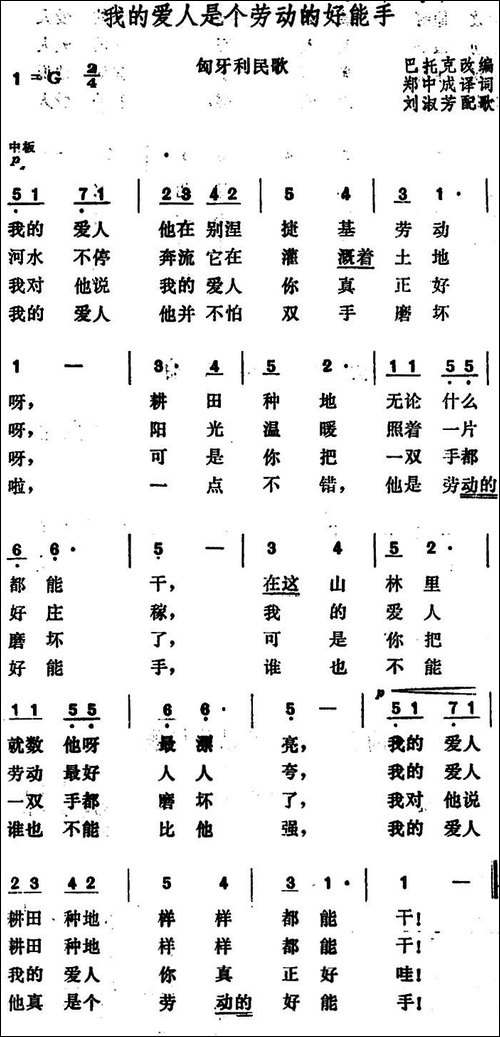 我的爱人是个劳动的好能手
1=G 2/4
匈牙利民歌
巴托克改编
郑中成译词
刘淑芳配歌
中板
p
5 1 7 1 | 2 3 4 2 | 5 4 | 3 1· |
我的 爱人 他在 别涅 捷 基 劳 动
河水 不停 奔流 它在 灌 溉着 土 地
我对 他说 我的 爱人 你 真 正 好
我的 爱人 他并 不怕 双 手 磨 坏
1 — | 3· 4 | 5 2· | 1 1 5 5 |
呀， 耕 田 种 地 无论 什么
呀， 阳 光 温 暖 照着 一片
呀， 可 是 你 把 一双 手都
啦， 一 点 不 错， 他是 劳动的
6 6· | 5 — | 3 4 | 5 2· |
都 能 干， 在这 山 林 里
好 庄 稼， 我 的 爱 人
磨 坏 了， 可 是 你 把
好 能 手， 谁 也 不 能
p
1 1 5 5 | 6 6· | 5 — | 5 1 7 1 |
就数 他呀 最 漂 亮， 我的 爱人
劳动 最好 人 人 夸， 我的 爱人
一双 手都 磨 坏 了， 我对 他说
谁也 不能 比 他 强， 我的 爱人
2 3 4 2 | 5 4 | 3 1· | 1 — ‖
耕田 种地 样 样 都 能 干！
耕田 种地 样 样 都 能 干！
我的 爱人 你 真 正 好 哇！
他真 是个 劳 动的 好 能 手！